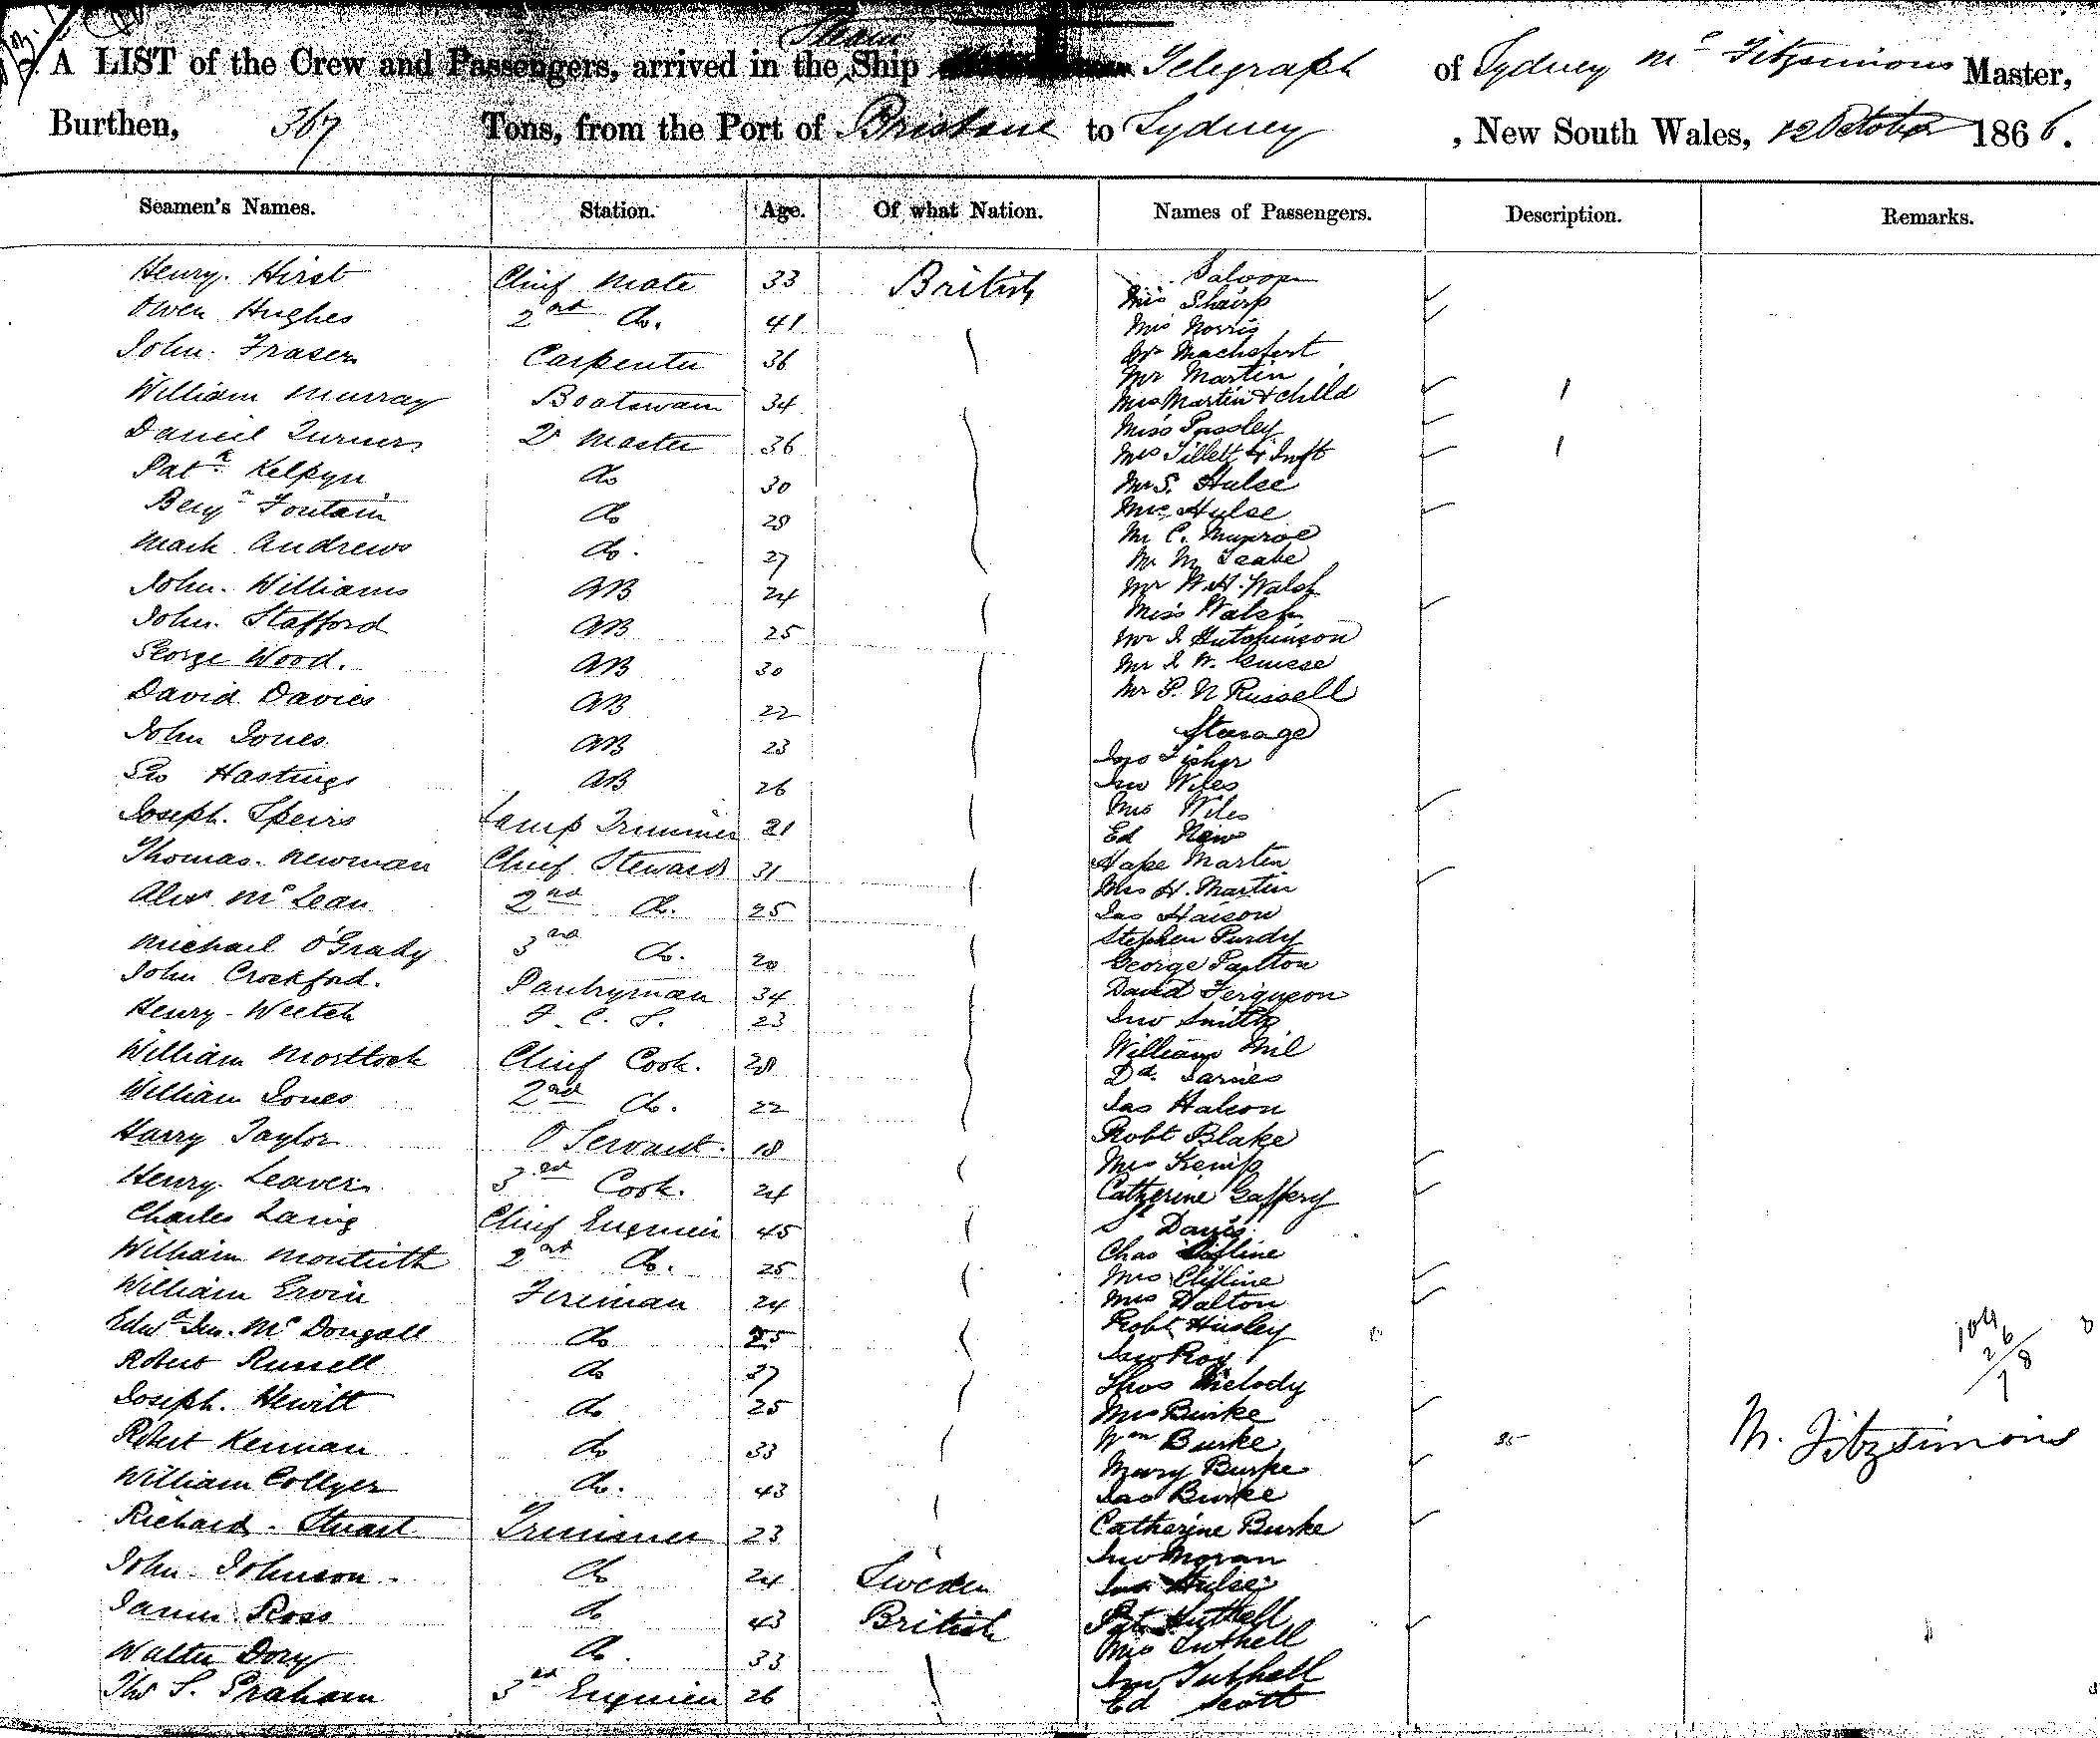 A LIST of the Crew and Passengers, arrived in the Steam Ship Telegraph of Sydney Mc Fitzsimons Master,
Burthen, 367 Tons, from the Port of Brisbane to Sydney, New South Wales, 12 October 1866.
Seamen's Names. Station. Age. Of what Nation. Names of Passengers. Description. Remarks.
Henry Hirst Chief Mate 33 British Saloon
Owen Hughes 2nd Do. 41 Mrs Sharp
Mrs Norris
John Fraser Carpenter 36
Mr Martin
William Murray Boatswain 34 Mrs Martin & child 1
Daniel Turner Qr Master 36 Miss Passley
Mrs Tillett & Inft 1
Patk do 30 Mr S. Hulse
Benjn Fontain do 28 Mrs Hulse
Mr C. Munroe
Mark Andrews do. 27 Mr M
John Williams AB 24 Mr W.H. Walsh
John Stafford AB 25 Miss Walsh
Mr J Hutchinson
George Wood. AB 30 Mr J W.
David Davies AB 22 Mr P. N Russell
Steerage
John Jones AB 23 Jno Fisher
Geo Hastings AB 26 Jno Wiles
Joseph Speirs Lamp Trimmer 21 Mrs Wiles
Ed New
Thomas Newman Chief Steward 31 Hape Martin
Mrs H. Martin
Alexr McLean 2nd Do. 25 Jas
Michael O'Grady 3rd Do. 20 Stephen Purdy
George
John Crockford. Pantryman 34 David Ferguson
Henry Weetch F. C. S. 23 Jno Smith
William Mortlock Chief Cook. 28 William
Dd. James
William Jones 2nd Do. 22 Jas Halson
Harry Taylor O Servant. 18 Robt Blake
Henry Leaver 3rd Cook. 24 Mrs Kemp
Catherine Gaffery
Charles Laing Chief Engineer 45 Davis
William Monteith 2nd Do. 25 Chas
Mrs Clifline
William Ervin Fireman 24 Mrs Dalton
Edwd Jno. McDougall do 25 Robt Hinsley
Robert Russell do 27 Jno Roy
Thos Melody
Joseph Hewitt do 25 Mrs Burke
Robert Kennan do 33 Wm Burke 35 M. Fitzsimons
Mary Burke
William Collyer do. 43 Jas Burke
Richard Stuart Trimmer 23 Catherine Burke
Jno Moran
John Johnson do 24 Sweden Hulse
James Ross do 43 British Pat
Walter Dory do. 33 Mrs Tuthell
Jno Tuthell
Thos S. Graham 3rd Engineer 26 Ed Scott
104
26
78